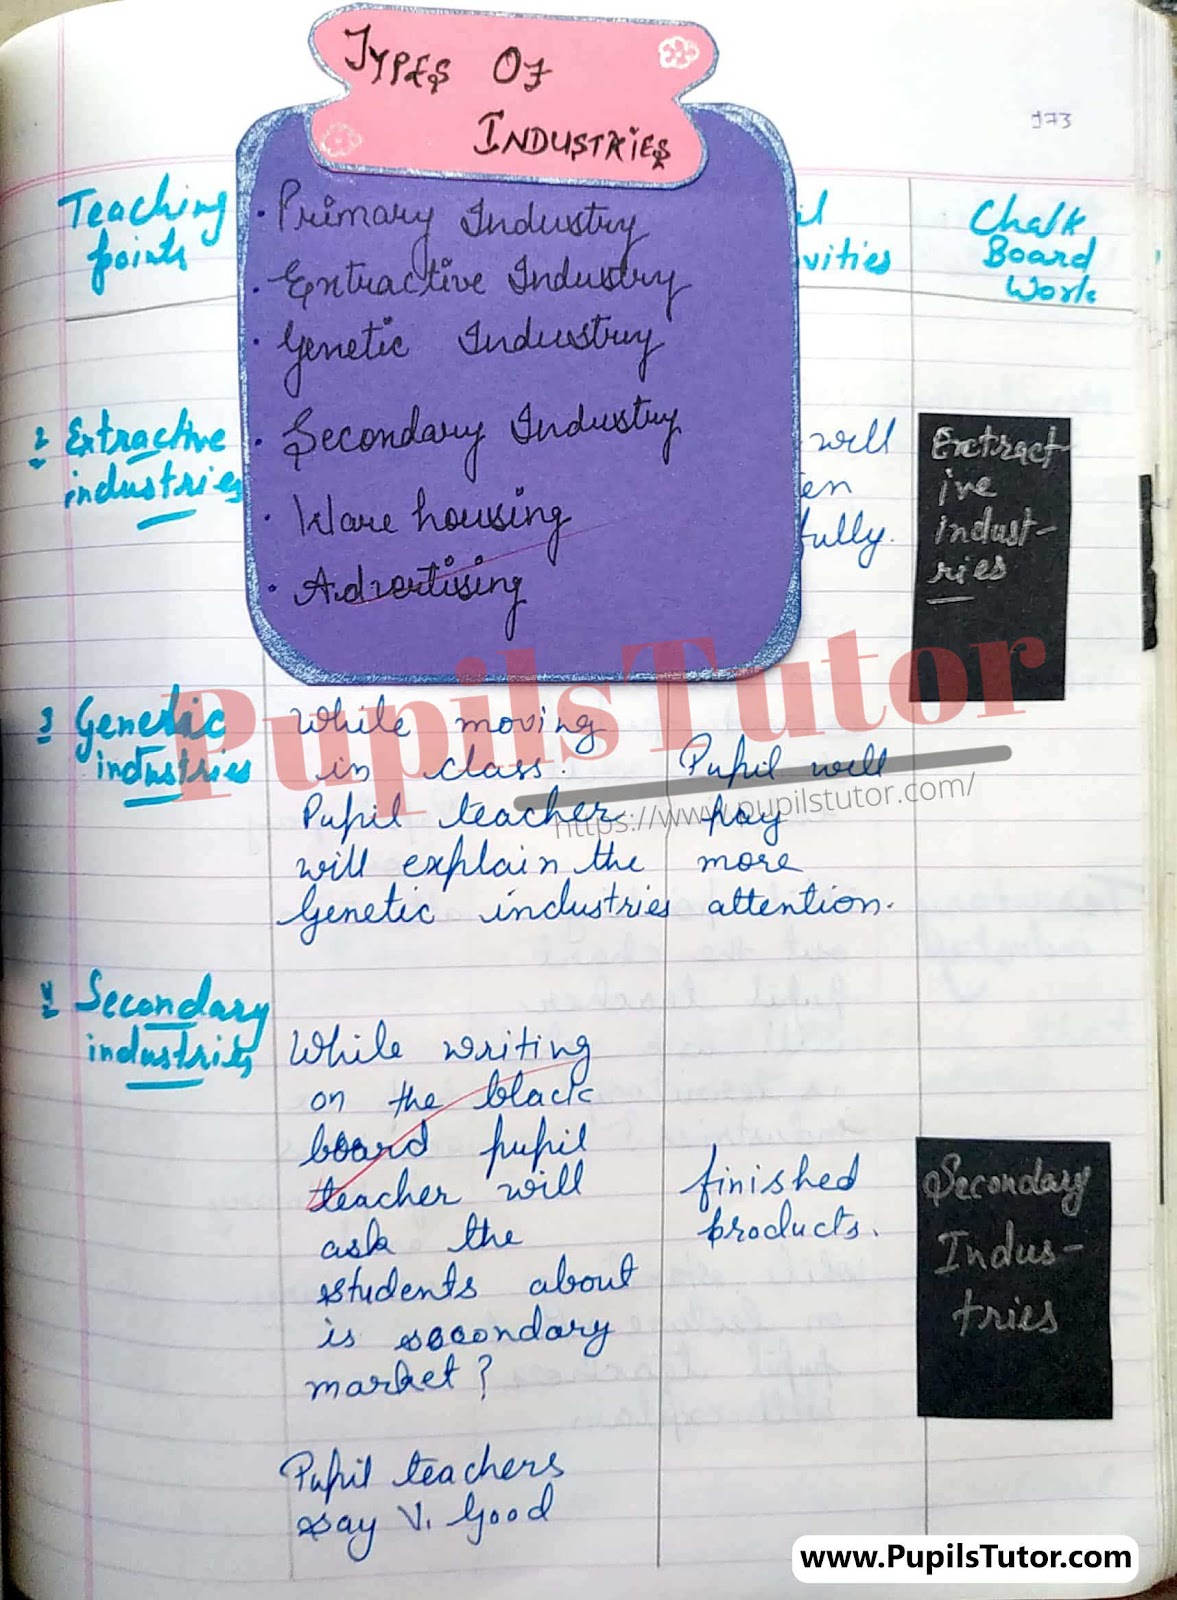 TYPES OF
INDUSTRIES
973
Teaching
points
vities
Chalk
Board
Work
• Primary Industry
• Extractive Industry
• Genetic Industry
• Secondary Industry
• Ware housing
• Advertising
2 Extractive
industries
will
fully.
Extract-
ive
indust-
ries
3 Genetic
industries
While moving
in class.
Pupil teacher
will explain the
Genetic industries
Pupil will
pay
more
attention.
4 Secondary
industries
While writing
on the black
board pupil
teacher will
ask the
students about
is secondary
market?
finished
products.
Secondary
Indus-
tries
Pupil teachers
say V. Good
PupilsTutor
https://www.pupilstutor.com/
www.PupilsTutor.com